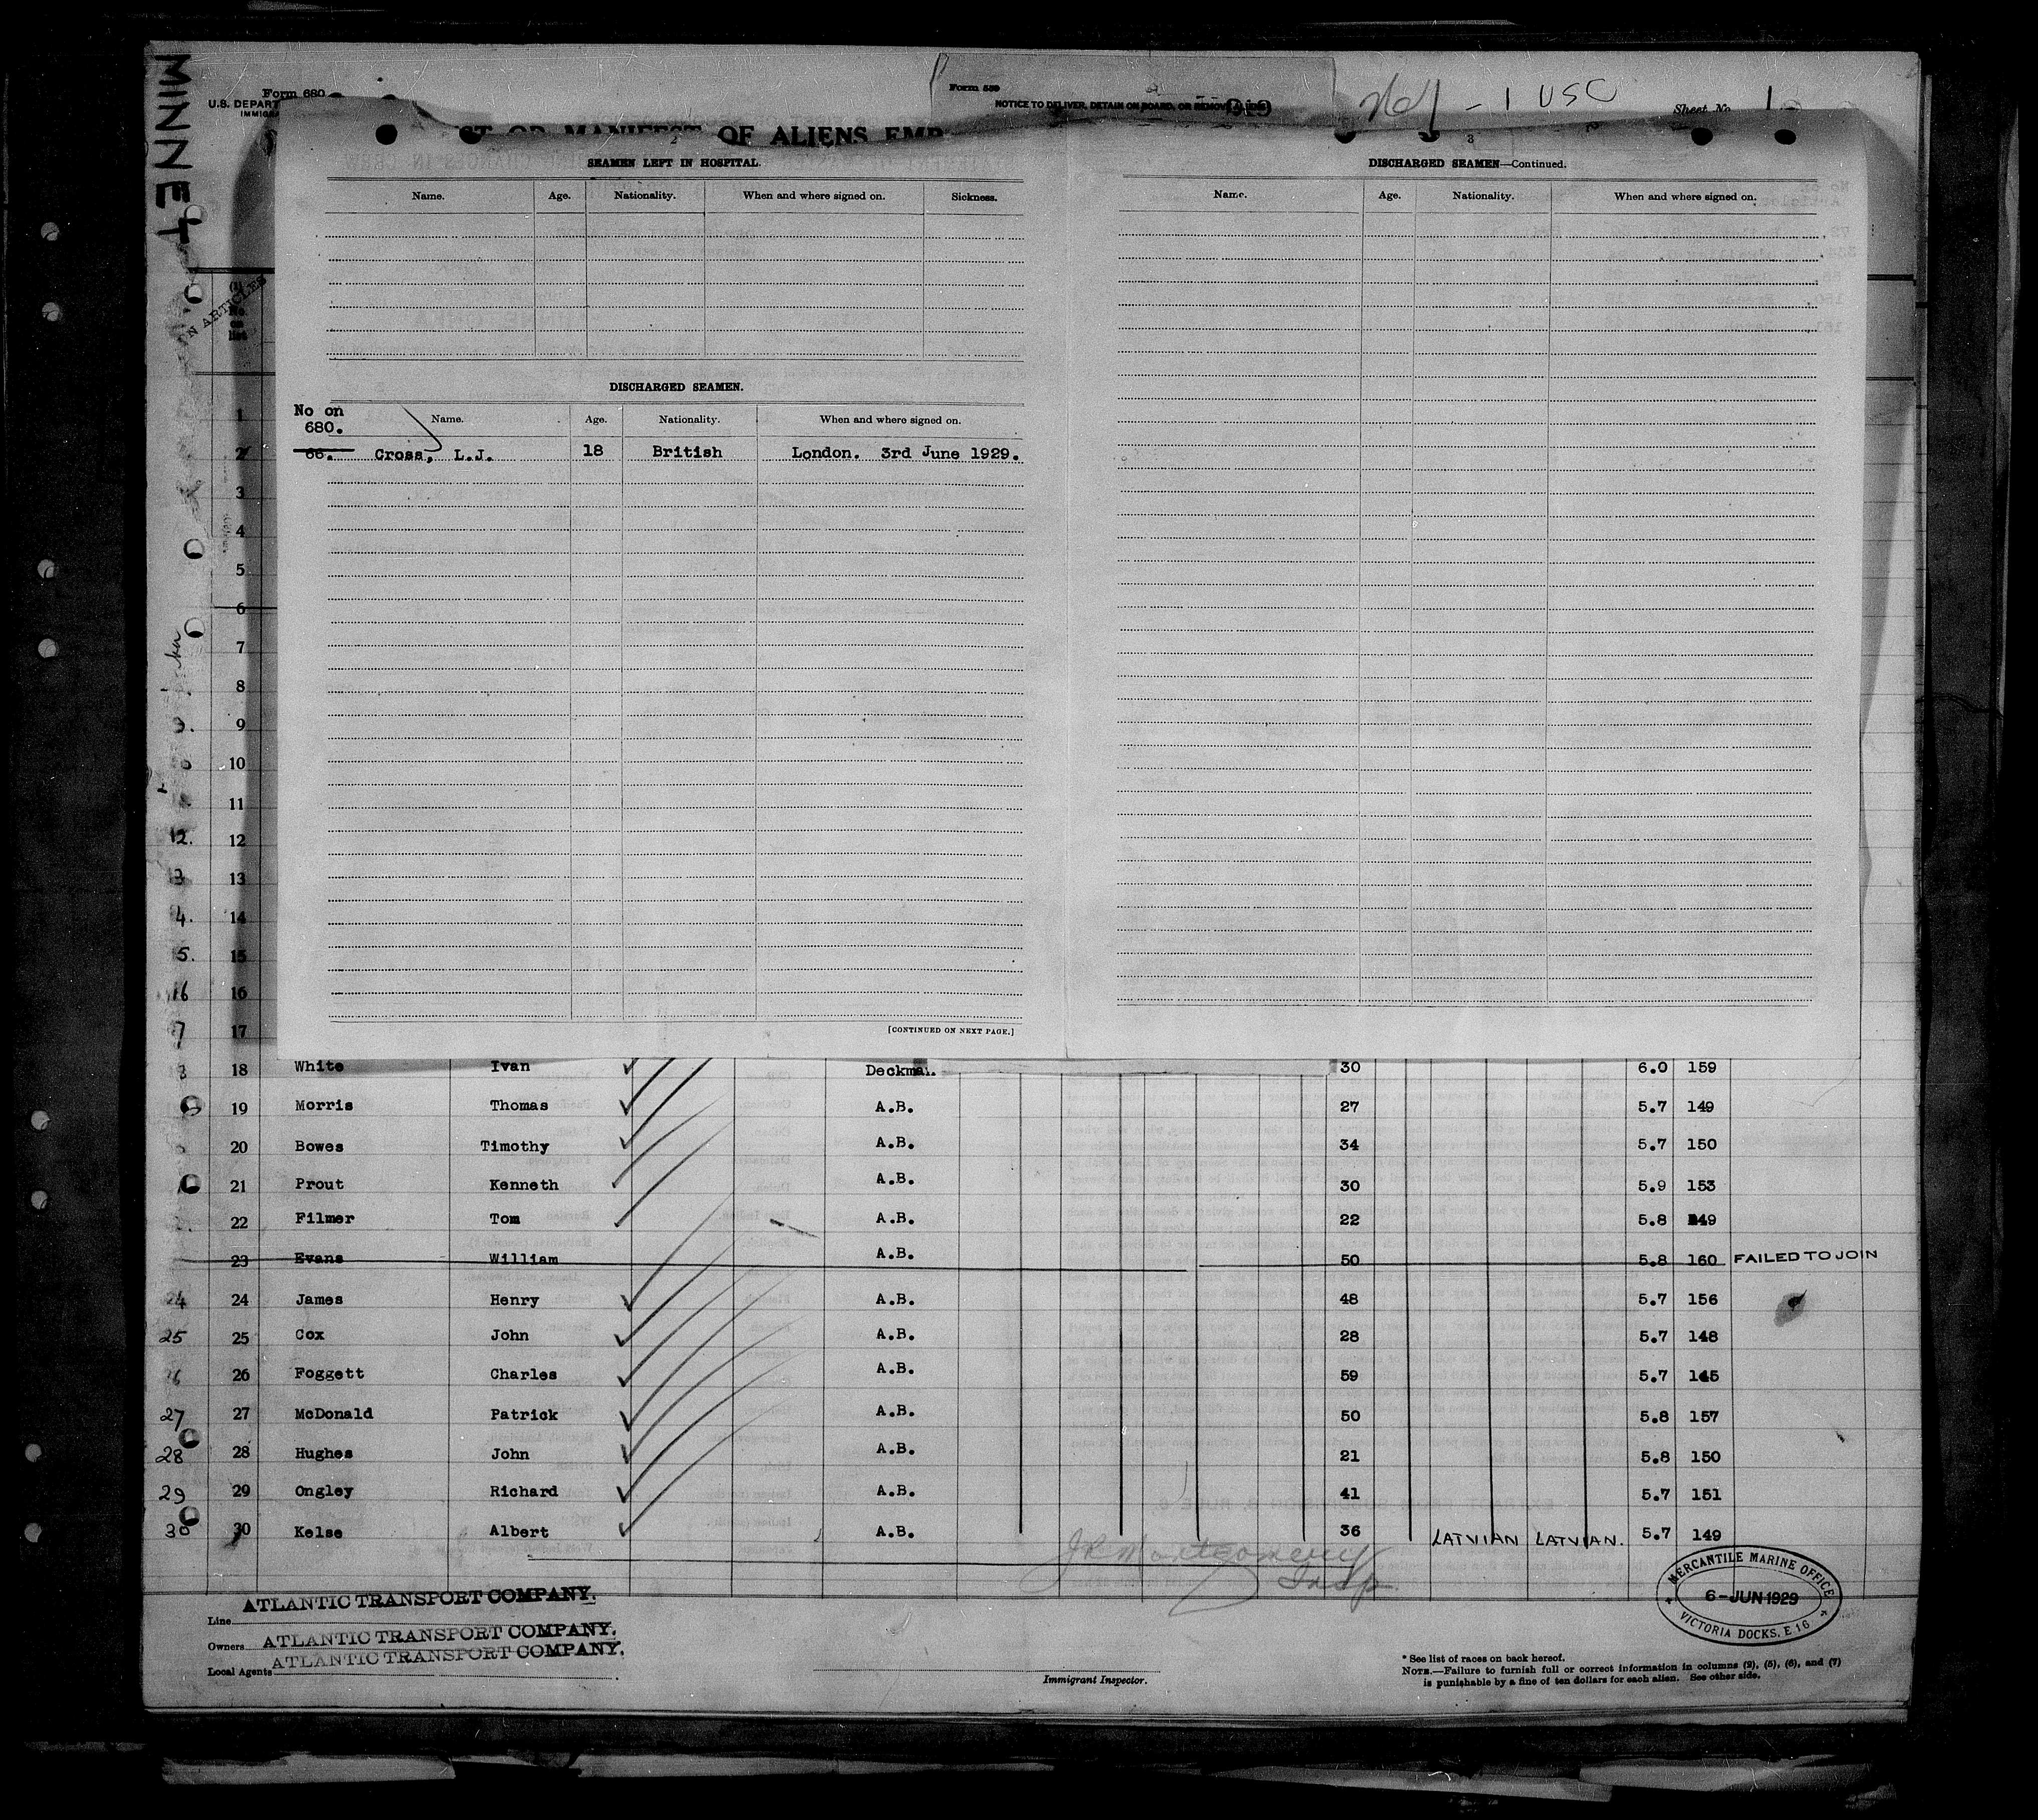 MINNET
Form 680
U.S. DEPART
Form 539
NOTICE TO DELIVER, DETAIN ON BOARD, OR REMOVE
- 1 USC
Sheet No. 1
ST OR MANIFEST OF ALIENS EMP
2
SEAMEN LEFT IN HOSPITAL.
Name. Age. Nationality. When and where signed on. Sickness.
DISCHARGED SEAMEN.
No on
680.
Name. Age. Nationality. When and where signed on.
66. Cross, L.J. 18 British London. 3rd June 1929.
[CONTINUED ON NEXT PAGE.]
3
DISCHARGED SEAMEN—Continued.
Name. Age. Nationality. When and where signed on.
N ARTICLES
1
2
3
4
5
6
7
8
9
10
11
12. 12
13
4. 14
5. 15
16 16
7 17
18 White Ivan Deckman. 30 6.0 159
19 Morris Thomas A.B. 27 5.7 149
20 Bowes Timothy A.B. 34 5.7 150
21 Prout Kenneth A.B. 30 5.9 153
22 Filmer Tom A.B. 22 5.8 149
23 Evans William A.B. 50 5.8 160 FAILED TO JOIN
24 24 James Henry A.B. 48 5.7 156
25 25 Cox John A.B. 28 5.7 148
26 Foggett Charles A.B. 59 5.7 145
27 27 McDonald Patrick A.B. 50 5.8 157
28 28 Hughes John A.B. 21 5.8 150
29 29 Ongley Richard A.B. 41 5.7 151
30 30 Kelse Albert A.B. 36 LATVIAN LATVIAN. 5.7 149
JR Montgomery
Insp.
Line ATLANTIC TRANSPORT COMPANY.
Owners ATLANTIC TRANSPORT COMPANY.
Local Agents ATLANTIC TRANSPORT COMPANY.
Immigrant Inspector.
MERCANTILE MARINE OFFICE
6-JUN 1929
VICTORIA DOCKS, E 16
* See list of races on back hereof.
NOTE.—Failure to furnish full or correct information in columns (2), (5), (6), and (7)
is punishable by a fine of ten dollars for each alien. See other side.